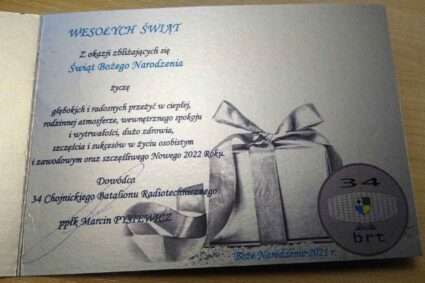 WESOŁYCH ŚWIĄT
Z okazji zbliżających się
Świąt Bożego Narodzenia
życzę
głębokich i radosnych przeżyć w ciepłej,
rodzinnej atmosferze, wewnętrznego spokoju
i wytrwałości, dużo zdrowia,
szczęścia i sukcesów w życiu osobistym
i zawodowym oraz szczęśliwego Nowego 2022 Roku.
Dowódca
34 Chojnickiego Batalionu Radiotechnicznego
ppłk Marcin PYSIEWICZ
34
brt
Boże Narodzenie 2021 r.